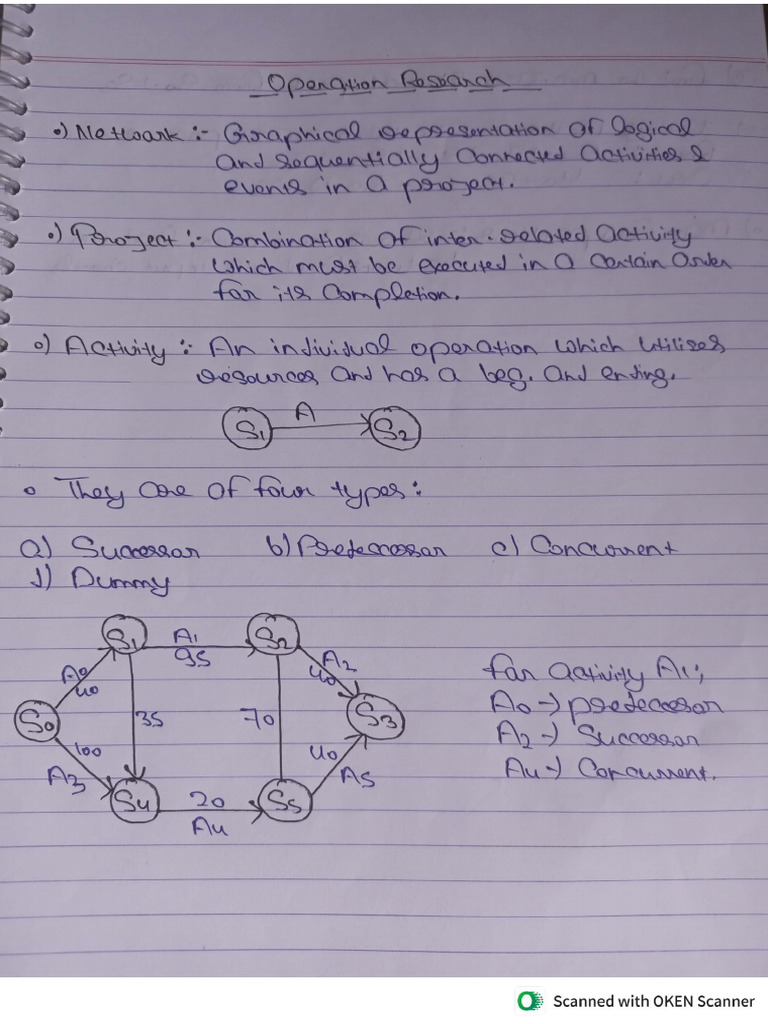 Operation Research
•) Network :- Graphical representation of logical
and sequentially connected activities &
events in a project.
•) Project :- Combination of inter-related activity
which must be executed in a certain order
for its completion.
•) Activity :- An individual operation which utilises
resources and has a beg. and ending.
A
S1 S2
• They are of four types:
a) Successor b) Predecessor c) Concurrent
d) Dummy
S1 A1 95 S2
A0 40
A2 40
S0 35 70 S3
100 A3
40 A5
S4 20 A4 S5
For activity A1;
A0 → predecessor
A2 → Successor
A4 → Concurrent.
Scanned with OKEN Scanner